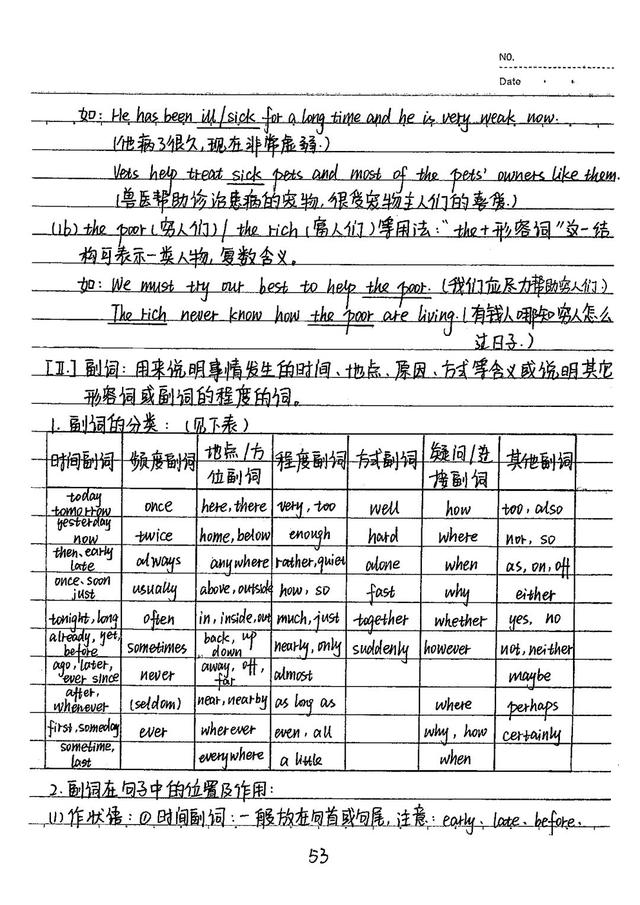 NO.
Date
如: He has been ill/sick for a long time and he is very weak now.
(他病了很久,现在非常虚弱.)
Vets help treat sick pets and most of the pets' owners like them.
(兽医帮助诊治患病的宠物,很受宠物主人们的喜爱.)
(16) the poor (穷人们) / the rich (富人们) 等用法: "the+形容词"这一结
构可表示一类人物,复数含义。
如: We must try our best to help the poor. (我们应尽力帮助穷人们)
The rich never know how the poor are living. (有钱人哪知穷人怎么
过日子.)
[II.] 副词: 用来说明事情发生的时间、地点、原因、方式等含义或说明其它
形容词或副词的程度的词。
1. 副词的分类: (见下表)
时间副词 频度副词 地点/方位副词 程度副词 方式副词 疑问/连接副词 其他副词
today tomorrow once here, there very, too well how too, also
yesterday now twice home, below enough hard where not, so
then, early late always anywhere rather, quiet alone when as, on, off
once, soon just usually above, outside how, so fast why either
tonight, long often in, inside, out much, just together whether yes, no
already, yet, before sometimes back, up down nearly, only suddenly however not, neither
ago, later, ever since never away, off, far almost maybe
after, whenever (seldom) near, nearby as long as where perhaps
first, someday ever wherever even, all why, how certainly
sometime, last everywhere a little when
2. 副词在句子中的位置及作用:
(1) 作状语: ① 时间副词: 一般放在句首或句尾, 注意: early、late、before、
53